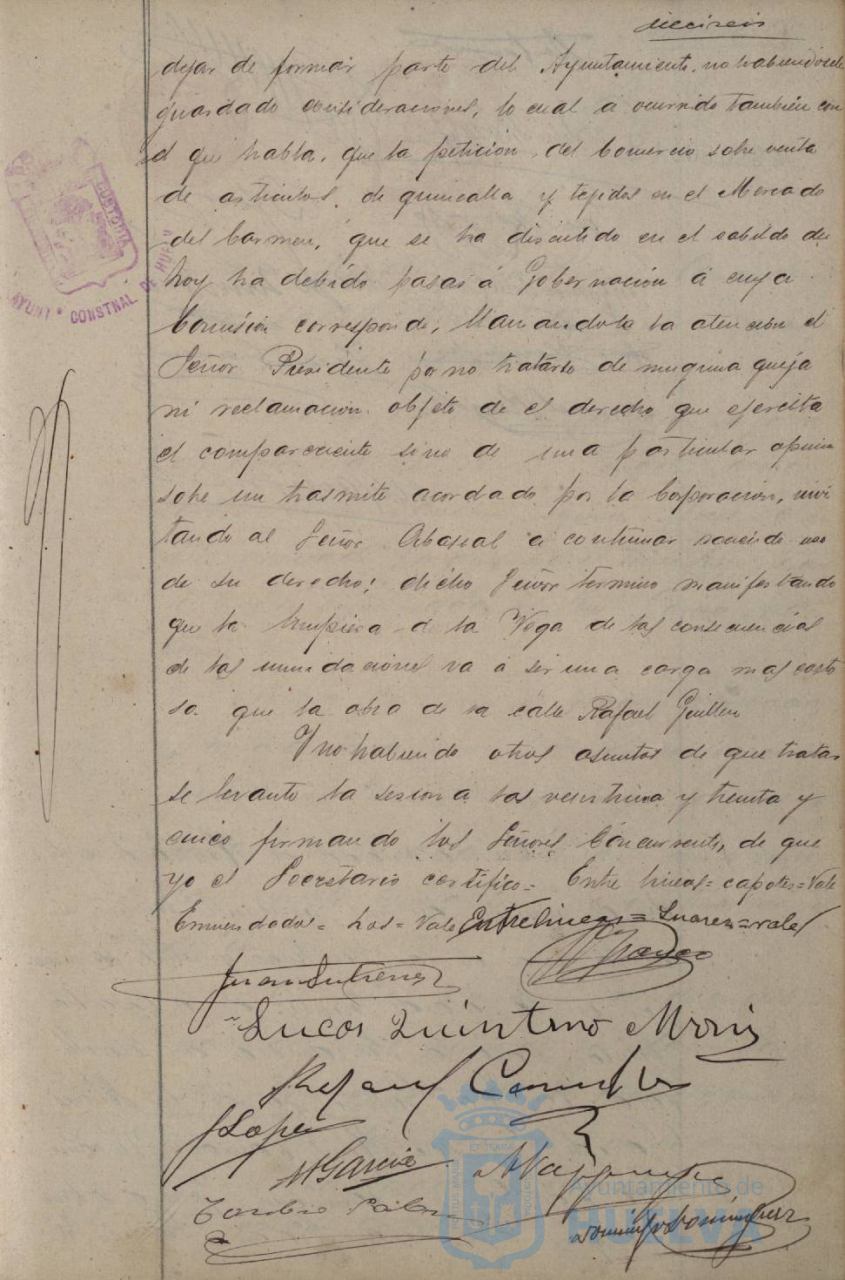 dieciseis
dejar de formar parte del Ayuntamiento, no habiendosele
guardado consideraciones, lo cual a ocurrido tambien con
el que habla, que la petición del Comercio sobre venta
de articulos de quincalla y tejidos en el Mercado
del Carmen, que se ha discutido en el cabildo de
hoy ha debido pasar á Gobernación á cuya
Comisión corresponde, llamandole la atención el
Señor Presidente por no tratarse de ninguna queja
ni reclamación objeto de el derecho que ejercita
el compareciente sino de una particular opinion
sobre un trasmite acordado por la Corporación, invi
tando al Señor Abascal a continuar haciendo uso
de su derecho; dicho Señor termino manifestando
que la limpieza de la Vega de las consecuencias
de las inundaciones va á ser una carga mas costo
sa que la obra de la calle Rafael Guillen
Y no habiendo otros asuntos de que tratar
se levanto la sesion a las veintiuna y treinta y
cinco firmando los Señores Concurrentes, de que
yo el Secretario certifico = Entre lineas = capotes = Vale
Enmendados = los = Vale Entrelineas = Suarez = vale
Juan Gutierrez
Lucas Quintero
Rafael
J Lopez
M Garcia
Toribio
Domingo Dominguez
AYUNT * CONSTNAL DE HUELVA
Ayuntamiento de
HUELVA